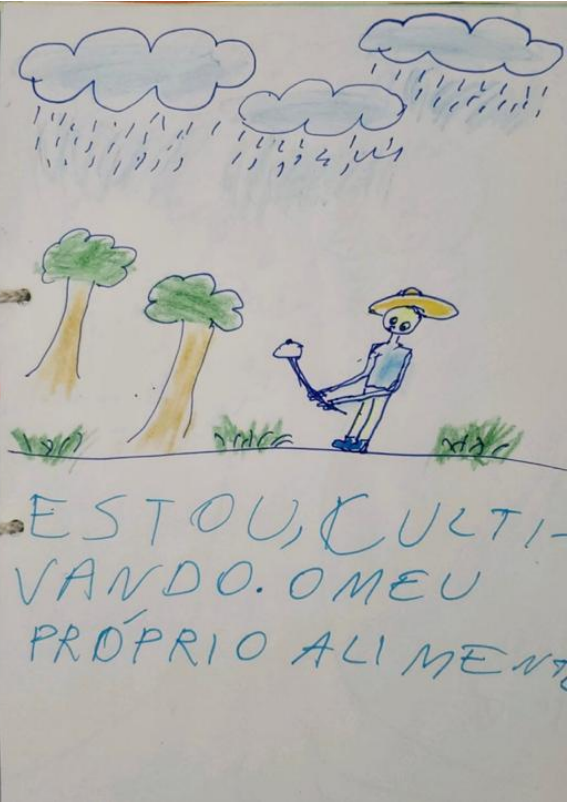 ESTOU, CULTI-
VANDO. O MEU
PRÓPRIO ALIMENTO